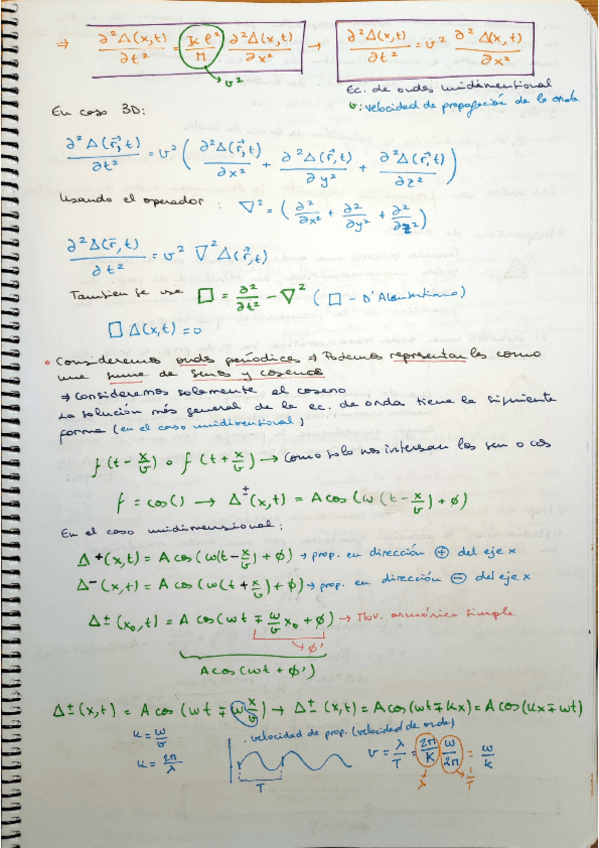 ⇒ ∂²Δ(x,t)/∂t² = k l²/M ∂²Δ(x,t)/∂x² → ∂²Δ(x,t)/∂t² = v² ∂²Δ(x,t)/∂x²
v²
Ec. de ondas unidimentional
v: velocidad de propagación de la onda
En caso 3D:
∂²Δ(r⃗,t)/∂t² = v² (∂²Δ(r⃗,t)/∂x² + ∂²Δ(r⃗,t)/∂y² + ∂²Δ(r⃗,t)/∂z²)
Usando el operador : ∇² = (∂²/∂x² + ∂²/∂y² + ∂²/∂z²)
∂²Δ(r⃗,t)/∂t² = v² ∇²Δ(r⃗,t)
Tambien se usa □ = ∂²/∂t² - ∇² (□ - D'Alambertiano)
□ Δ(x,t) = 0
• Consideremos ondas periódicas ⇒ Podemos representarlas como
una suma de senos y cosenos
⇒ Consideremos solamente el coseno
La solución más general de la ec. de onda tiene la siguiente
forma (en el caso unidimentional)
f(t - x/v) o f(t + x/v) → como solo nos interesan los sen o cos
f = cos() → Δ±(x,t) = A cos(ω(t - x/v) + ϕ)
En el caso unidimensional:
Δ⁺(x,t) = A cos(ω(t - x/v) + ϕ) → prop. en dirección ⊕ del eje x
Δ⁻(x,t) = A cos(ω(t + x/v) + ϕ) → prop. en dirección ⊖ del eje x
Δ±(x₀,t) = A cos(ωt ∓ ω/v x₀ + ϕ) → Mov. armónico simple
ϕ'
A cos(ωt + ϕ')
Δ±(x,t) = A cos(ωt ∓ ω x/v) → Δ±(x,t) = A cos(ωt ∓ kx) = A cos(kx ∓ ωt)
k = ω/v
velocidad de prop. (velocidad de onda)
k = 2π/λ
T
v = λ/T = 2π/k ω/2π = ω/k
λ
1/T